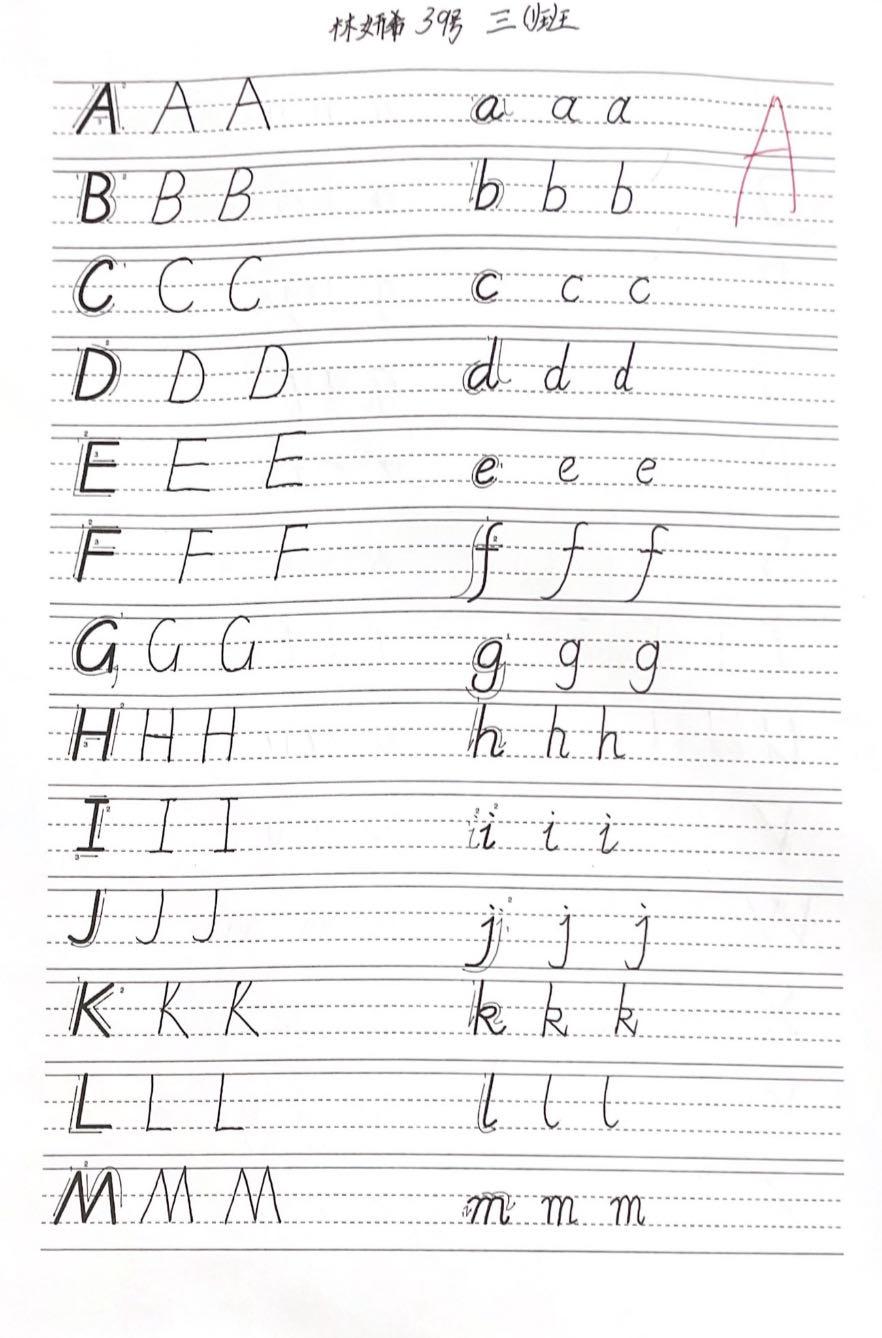 林妍希 39号 三(1)班
A A A a a a
A
B B B b b b
C C C c c c
D D D d d d
E E E e e e
F F F f f f
G G G g g g
H H H h h h
I I I i i i
J J J j j j
K K K k k k
L L L l l l
M M M m m m